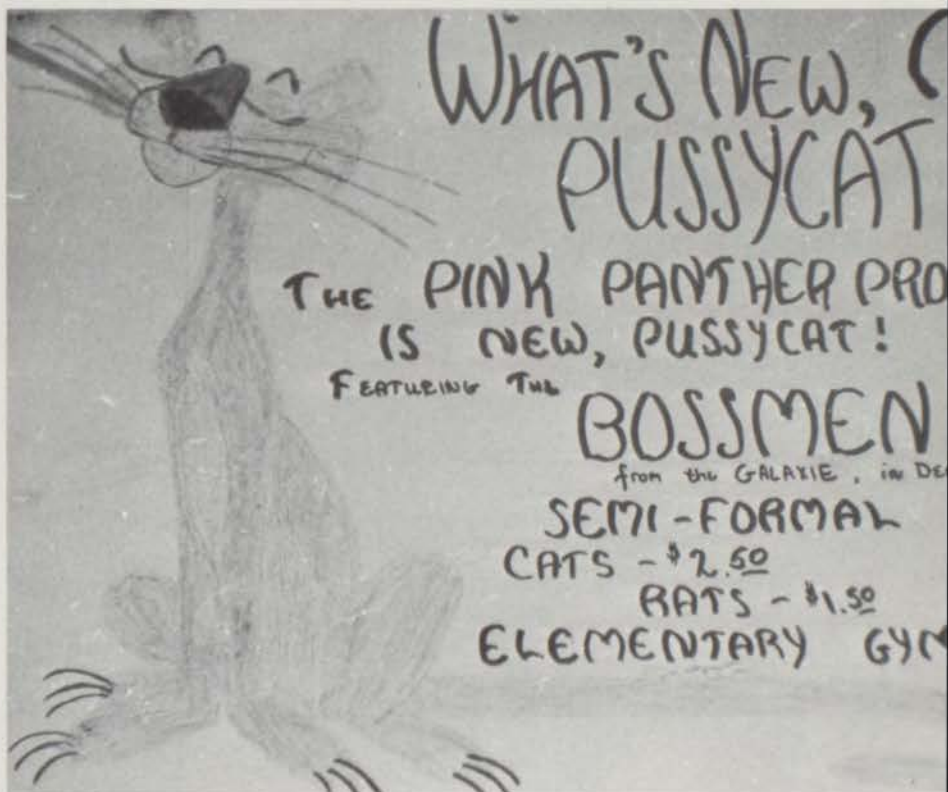 WHAT'S NEW,
PUSSYCAT
THE PINK PANTHER PRO
IS NEW, PUSSYCAT!
FEATURING THE
BOSSMEN
from the GALAXIE, in DE
SEMI-FORMAL
CATS - $2.50
RATS - $1.50
ELEMENTARY GYM